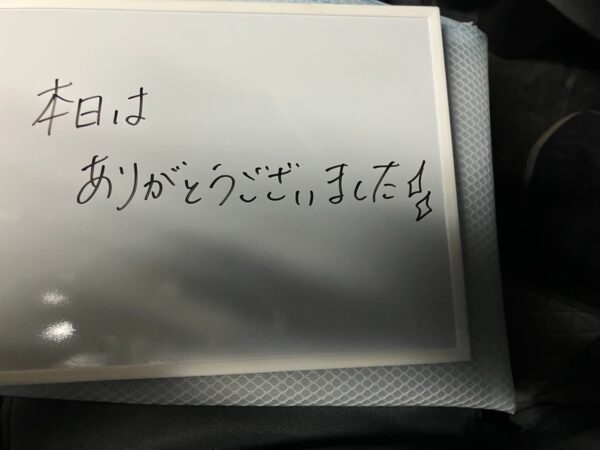 本日は
ありがとうございました!